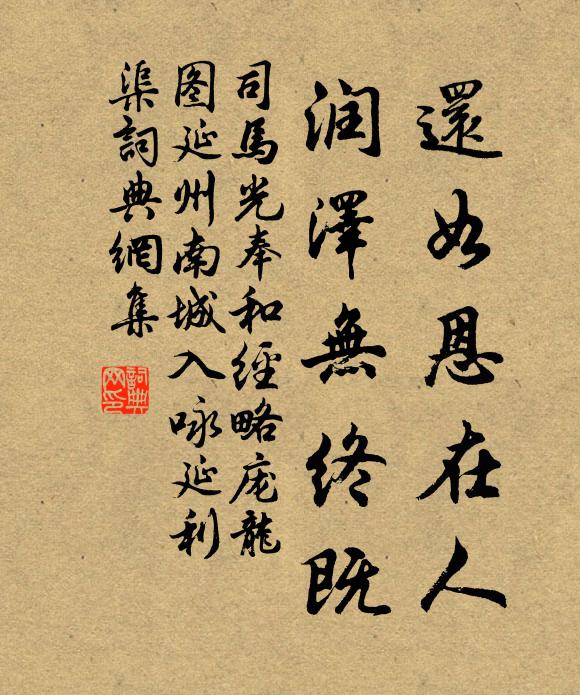 還如恩在人
润澤無終既
司馬光奉和經略庞龍
图延州南城入咏延利
渠詞典網集
詞典
网印